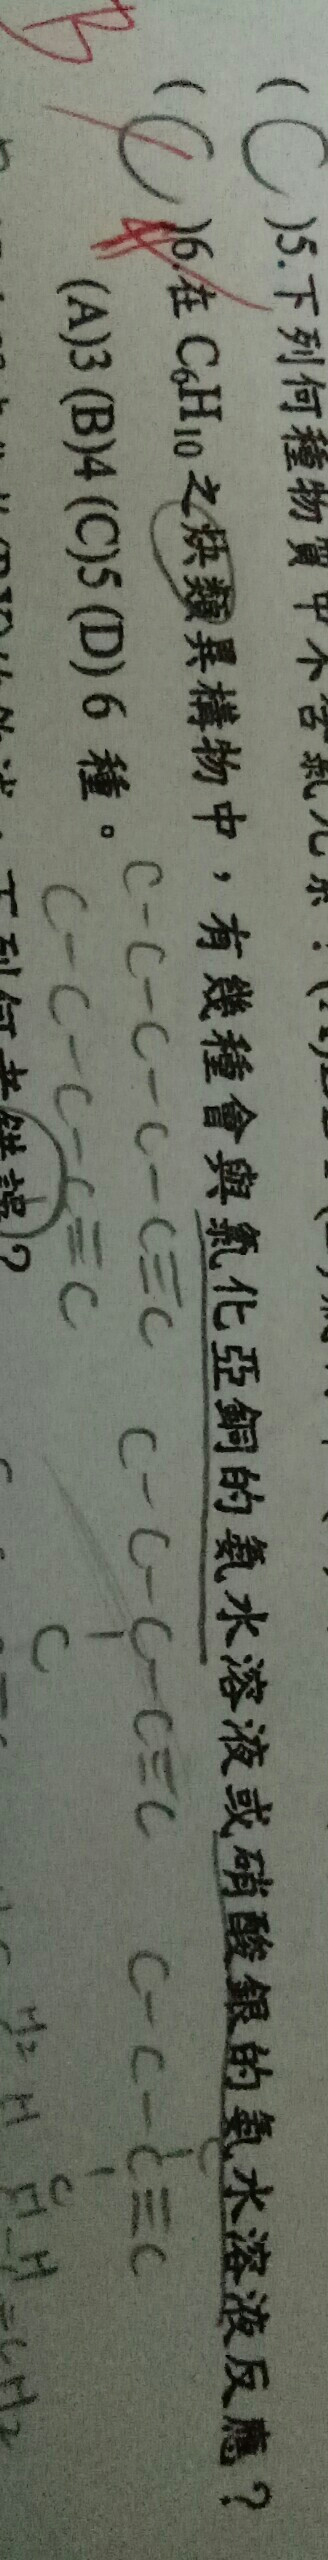 (C)5.下列何種物質中不含氮元素?
(C)6.在C6H10之炔類異構物中,有幾種會與氯化亞銅的氨水溶液或硝酸銀的氨水溶液反應?
(A)3 (B)4 (C)5 (D)6 種。
B
C-C-C-C-C≡C
C-C-C-C≡C
C
C-C-C≡C
C
C
C-C-C-C≡C
下列何者錯誤?